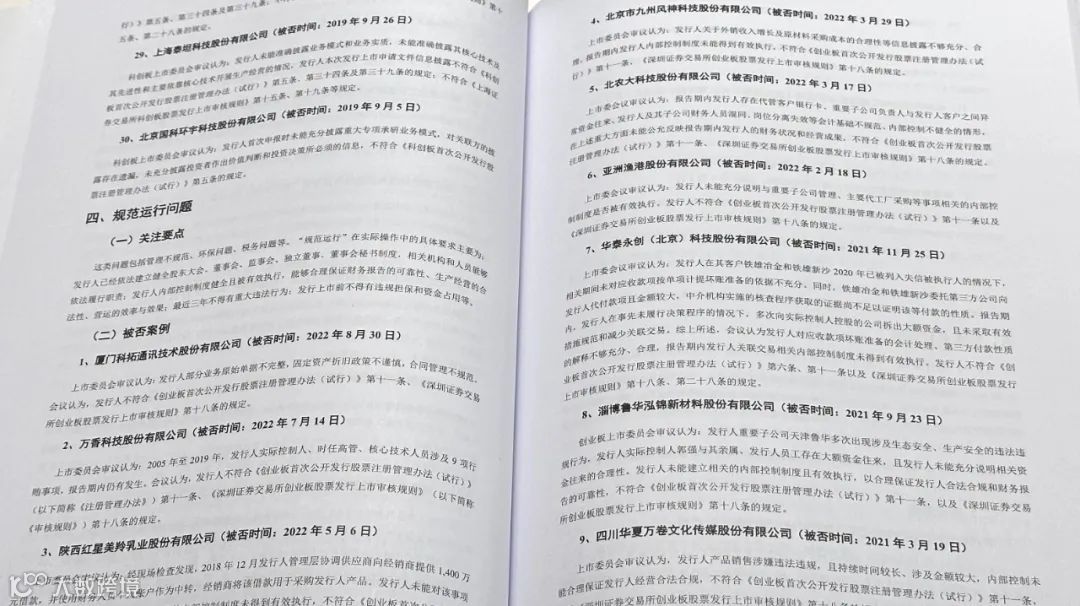 行）》第五条、第三十四条及第三十九条；不符合《上海证券交易所科创板股票发行上市审核规则》第十
五条、第二十八条的规定。
29、上海泰坦科技股份有限公司（被否时间：2019 年 9 月 26 日）
科创板上市委员会审议认为：发行人未能准确披露业务模式和业务实质，未能准确披露其核心技术及
其先进性和主要依靠核心技术开展生产经营的情况，发行人本次发行上市申请文件信息披露不符合《科创
板首次公开发行股票注册管理办法（试行）》第五条、第三十四条及第三十九条的规定；不符合《上海证
券交易所科创板股票发行上市审核规则》第十五条、第十九条等规定。
30、北京国科环宇科技股份有限公司（被否时间：2019 年 9 月 5 日）
科创板上市委员会审议认为：发行人首次申报时未能充分披露重大专项承研业务模式，对关联方的披
露存在遗漏，未充分披露投资者作出价值判断和投资决策所必须的信息，不符合《科创板首次公开发行股
票注册管理办法（试行）》第五条的规定。
四、规范运行问题
（一）关注要点
这类问题包括管理不规范、环保问题、税务问题等。“规范运行”在实际操作中的具体要求主要为：
发行人已经依法建立健全股东大会、董事会、监事会、独立董事、董事会秘书制度，相关机构和人员能够
依法履行职责；发行人内部控制制度健全且被有效执行，能够合理保证财务报告的可靠性、生产经营的合
法性、营运的效率与效果；最近三年不得有重大违法行为；发行上市前不得有违规担保和资金占用等。
（二）被否案例
1、厦门科拓通讯技术股份有限公司（被否时间：2022 年 8 月 30 日）
上市委员会审议认为：发行人部分业务原始单据不完整，固定资产折旧政策不谨慎，合同管理不规范。
会议认为，发行人不符合《创业板首次公开发行股票注册管理办法（试行）》第十一条、《深圳证券交易
所创业板股票发行上市审核规则》第十八条的规定。
2、万香科技股份有限公司（被否时间：2022 年 7 月 14 日）
上市委员会审议认为：2005 年至 2019 年，发行人实际控制人、时任高管、核心技术人员涉及 9 项行
贿事项，报告期内仍有发生。会议认为，发行人不符合《创业板首次公开发行股票注册管理办法（试行）》
（以下简称《注册管理办法》）第十一条、《深圳证券交易所创业板股票发行上市审核规则》（以下简称
《审核规则》）第十八条的规定。
3、陕西红星美羚乳业股份有限公司（被否时间：2022 年 5 月 6 日）
上市委员会审议认为：经现场检查发现，2018 年 12 月发行人管理层协调供应商向经销商提供 1,400 万
元借款，并使用财务人员个人账户作为中转，经销商将该借款用于采购发行人产品。发行人未能对该事项
制度未得到有效执行，不符合《创业板首次公开发行股
4、北京市九州风神科技股份有限公司（被否时间：2022 年 3 月 29 日）
上市委会议审议认为：发行人关于外销收入增长及原材料采购成本的合理性等信息披露不够充分、合
理，报告期内发行人内部控制制度未能得到有效执行。发行人不符合《创业板首次公开发行股票注册管理办法（试
行）》第十一条、《深圳证券交易所创业板股票发行上市审核规则》第十八条的规定。
5、北农大科技股份有限公司（被否时间：2022 年 3 月 17 日）
上市委会议审议认为：报告期内发行人存在代管客户银行卡、重要子公司负责人与发行人客户之间异
常资金往来、发行人及其子公司财务人员混同、岗位分离失效等会计基础不规范、内部控制不健全的情形，
在上述重大方面未能公允反映报告期内发行人的财务状况和经营成果，不符合《创业板首次公开发行股票
注册管理办法（试行）》第十一条、《深圳证券交易所创业板股票发行上市审核规则》第十八条的规定。
6、亚洲渔港股份有限公司（被否时间：2022 年 2 月 18 日）
上市委会议审议认为：发行人未能充分说明与重要子公司管理、主要代工厂采购等事项相关的内部控
制制度是否被有效执行。发行人不符合《创业板首次公开发行股票注册管理办法（试行）》第十一条以及
《深圳证券交易所创业板股票发行上市审核规则》第十八条的规定。
7、华泰永创（北京）科技股份有限公司（被否时间：2021 年 11 月 25 日）
上市委会议审议认为：发行人在其客户铁雄冶金和铁雄新沙 2020 年已被列入失信被执行人的情况下，
相关期间未对应收款项按单项计提坏账准备的依据不充分。同时，铁雄冶金和铁雄新沙委托第三方公司向
发行人代付款项且金额较大，中介机构实施的核查程序获取的证据尚不足以证明该等付款的性质。报告期
内，发行人在事先未履行决策程序的情况下，多次向实际控制人控股的公司拆出大额资金，且未采取有效
措施规范和减少关联交易。综上所述，会议认为发行人对应收款项坏账准备的会计处理、第三方付款性质
的解释不够充分、合理，报告期内发行人关联交易相关内部控制制度未得到有效执行。发行人不符合《创
业板首次公开发行股票注册管理办法（试行）》第六条、第十一条以及《深圳证券交易所创业板股票发行
上市审核规则》第十八条、第二十八条的规定。
8、淄博鲁华泓锦新材料股份有限公司（被否时间：2021 年 9 月 23 日）
创业板上市委员会审议认为：发行人重要子公司天津鲁华多次出现涉及生态安全、生产安全的违法违
规行为，发行人实际控制人郭强与其亲属、发行人员工存在大额资金往来，且发行人未能充分说明相关资
金往来的合理性。发行人未能建立相关的内部控制制度且有效执行，以合理保证发行人合法合规和财务报
告的可靠性，不符合《创业板首次公开发行股票注册管理办法（试行）》第十一条，以及《深圳证券交易
所创业板股票发行上市审核规则》第十八条的规定。
9、四川华夏万卷文化传媒股份有限公司（被否时间：2021 年 3 月 19 日）
上市委会议审议认为，发行人产品销售涉嫌违法违规，且持续时间较长、涉及金额较大，内部控制未
能合理保证发行人经营合法合规，不符合《创业板首次公开发行股票注册管理办法（试行）》第十一条、
《深圳证券交易所创业板股票发行上市审核规则》第十八条的规定。
大数跨境